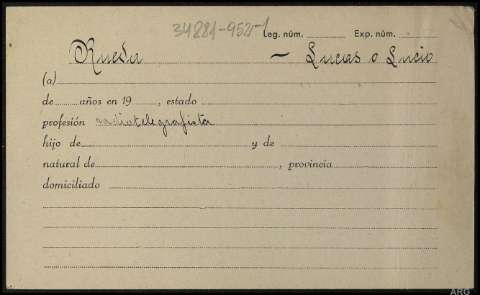 34281-952-1
Leg. núm. Exp. núm.
Rueda — Lucas o Lucio
(a)
de años en 19 , estado
profesión radiotelegrafista
hijo de y de
natural de , provincia
domiciliado
ARG